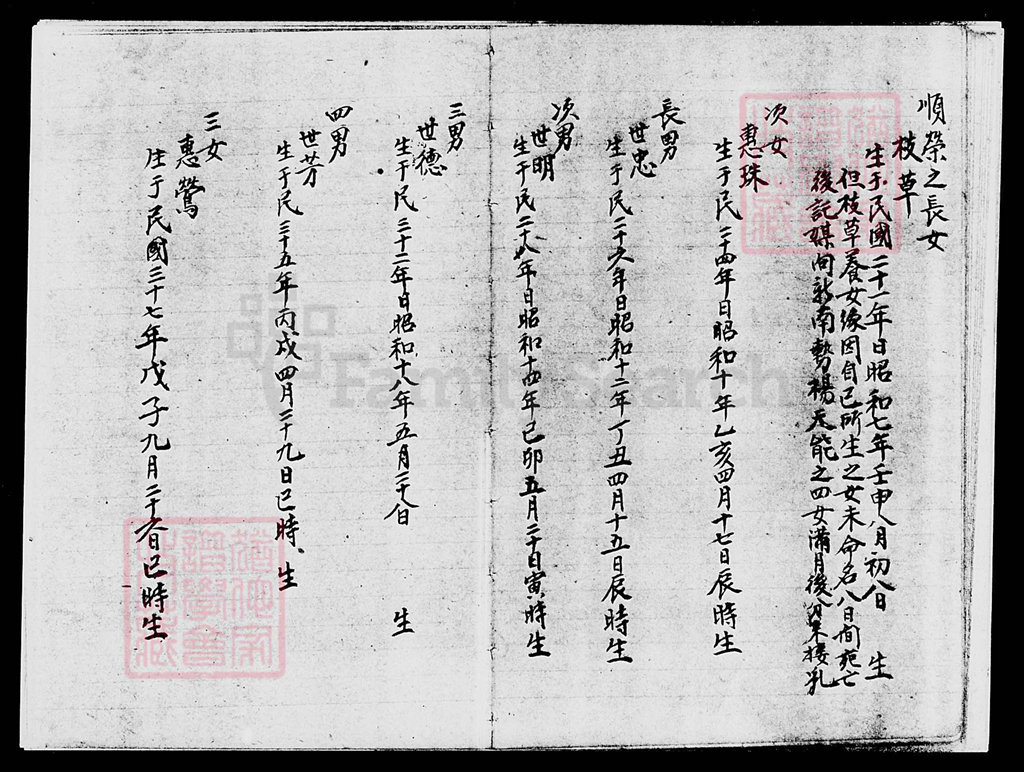 順榮之長女
枝草
生于民國二十一年日昭和七年壬申八月初八日 生
但枝草養女緣因自己所生之女未命名八日間死亡
後託媒向新南勢楊天能之四女滿月後 來接乳
次女
惠珠
生于民二十四年日昭和十年乙亥四月十七日辰時生
長男
世忠
生于民二十六年日昭和十二年丁丑四月十五日辰時生
次男
世明
生于民二十八年日昭和十四年己卯五月二十日寅時生
三男
世德
生于民三十二年日昭和十八年五月二十八日 生
四男
世芳
生于民三十五年丙戌四月二十九日巳時、生
三女
惠鶯
生于民國三十七年戊子九月二十六日巳時生
FamilySearch